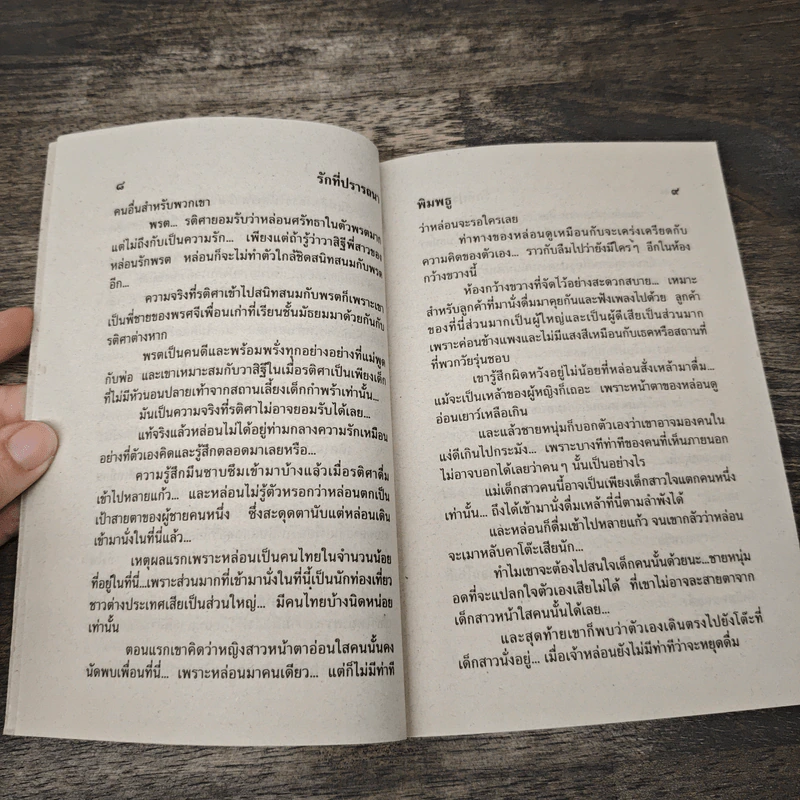 ๘ รักที่ปรารถนา
คนอื่นสำหรับพวกเขา
พรต... รติศายอมรับว่าหล่อนศรัทธาในตัวพรตมาก
แต่ไม่ถึงกับเป็นความรัก... เพียงแต่ถ้ารู้ว่าวาสิฐีพี่สาวของ
หล่อนรักพรต หล่อนก็จะไม่ทำตัวใกล้ชิดสนิทสนมกับพรต
อีก...
ความจริงที่รติศาเข้าไปสนิทสนมกับพรตก็เพราะเขา
เป็นพี่ชายของพรศจีเพื่อนเก่าที่เรียนชั้นมัธยมมาด้วยกันกับ
รติศาต่างหาก
พรตเป็นคนดีและพร้อมพรั่งทุกอย่างอย่างที่แม่พูด
กับพ่อ และเขาเหมาะสมกับวาสิฐีในเมื่อรติศาเป็นเพียงเด็ก
ที่ไม่มีหัวนอนปลายเท้าจากสถานเลี้ยงเด็กกำพร้าเท่านั้น...
มันเป็นความจริงที่รติศาไม่อาจยอมรับได้เลย...
แท้จริงแล้วหล่อนไม่ได้อยู่ท่ามกลางความรักเหมือน
อย่างที่ตัวเองคิดและรู้สึกตลอดมาเลยหรือ...
ความรู้สึกมึนซาบซึมเข้ามาบ้างแล้วเมื่อรติศาดื่ม
เข้าไปหลายแก้ว... และหล่อนไม่รู้ตัวหรอกว่าหล่อนตกเป็น
เป้าสายตาของผู้ชายคนหนึ่ง ซึ่งสะดุดตานับแต่หล่อนเดิน
เข้ามานั่งในที่นี้แล้ว...
เหตุผลแรกเพราะหล่อนเป็นคนไทยในจำนวนน้อย
ที่อยู่ในที่นี้...เพราะส่วนมากที่เข้ามานั่งในที่นี้เป็นนักท่องเที่ยว
ชาวต่างประเทศเสียเป็นส่วนใหญ่... มีคนไทยบ้างนิดหน่อย
เท่านั้น
ตอนแรกเขาคิดว่าหญิงสาวหน้าตาอ่อนใสคนนั้นคง
นัดพบเพื่อนที่นี่... เพราะหล่อนมาคนเดียว... แต่ก็ไม่มีท่าที
พิมพธู ๙
ว่าหล่อนจะรอใครเลย
ท่าทางของหล่อนดูเหมือนกับจะเคร่งเครียดกับ
ความคิดของตัวเอง... ราวกับลืมไปว่ายังมีใครๆ อีกในห้อง
กว้างขวางนี้
ห้องกว้างขวางที่จัดไว้อย่างสะดวกสบาย... เหมาะ
สำหรับลูกค้าที่มานั่งดื่มมาคุยกันและฟังเพลงไปด้วย ลูกค้า
ของที่นี่ส่วนมากเป็นผู้ใหญ่และเป็นผู้ดีเสียเป็นส่วนมาก
เพราะค่อนข้างแพงและไม่มีแสงสีเหมือนกับเธคหรือสถานที่
ที่พวกวัยรุ่นชอบ
เขารู้สึกผิดหวังอยู่ไม่น้อยที่หล่อนสั่งเหล้ามาดื่ม...
แม้จะเป็นเหล้าของผู้หญิงก็เถอะ เพราะหน้าตาของหล่อนดู
อ่อนเยาว์เหลือเกิน
และแล้วชายหนุ่มก็บอกตัวเองว่าเขาอาจมองคนใน
แง่ดีเกินไปกระมัง... เพราะบางทีท่าทีของคนที่เห็นภายนอก
ไม่อาจบอกได้เลยว่าคนๆ นั้นเป็นอย่างไร
แม่เด็กสาวคนนี้อาจเป็นเพียงเด็กสาวใจแตกคนหนึ่ง
เท่านั้น... ถึงได้เข้ามานั่งดื่มเหล้าที่นี่ตามลำพังได้
และหล่อนก็ดื่มเข้าไปหลายแก้ว จนเขากลัวว่าหล่อน
จะเมาหลับคาโต๊ะเสียนัก...
ทำไมเขาจะต้องไปสนใจเด็กคนนั้นด้วยนะ...ชายหนุ่ม
อดที่จะแปลกใจตัวเองเสียไม่ได้ ที่เขาไม่อาจละสายตาจาก
เด็กสาวหน้าใสคนนั้นได้เลย...
และสุดท้ายเขาก็พบว่าตัวเองเดินตรงไปยังโต๊ะที่
เด็กสาวนั่งอยู่... เมื่อเจ้าหล่อนยังไม่มีท่าทีว่าจะหยุดดื่ม